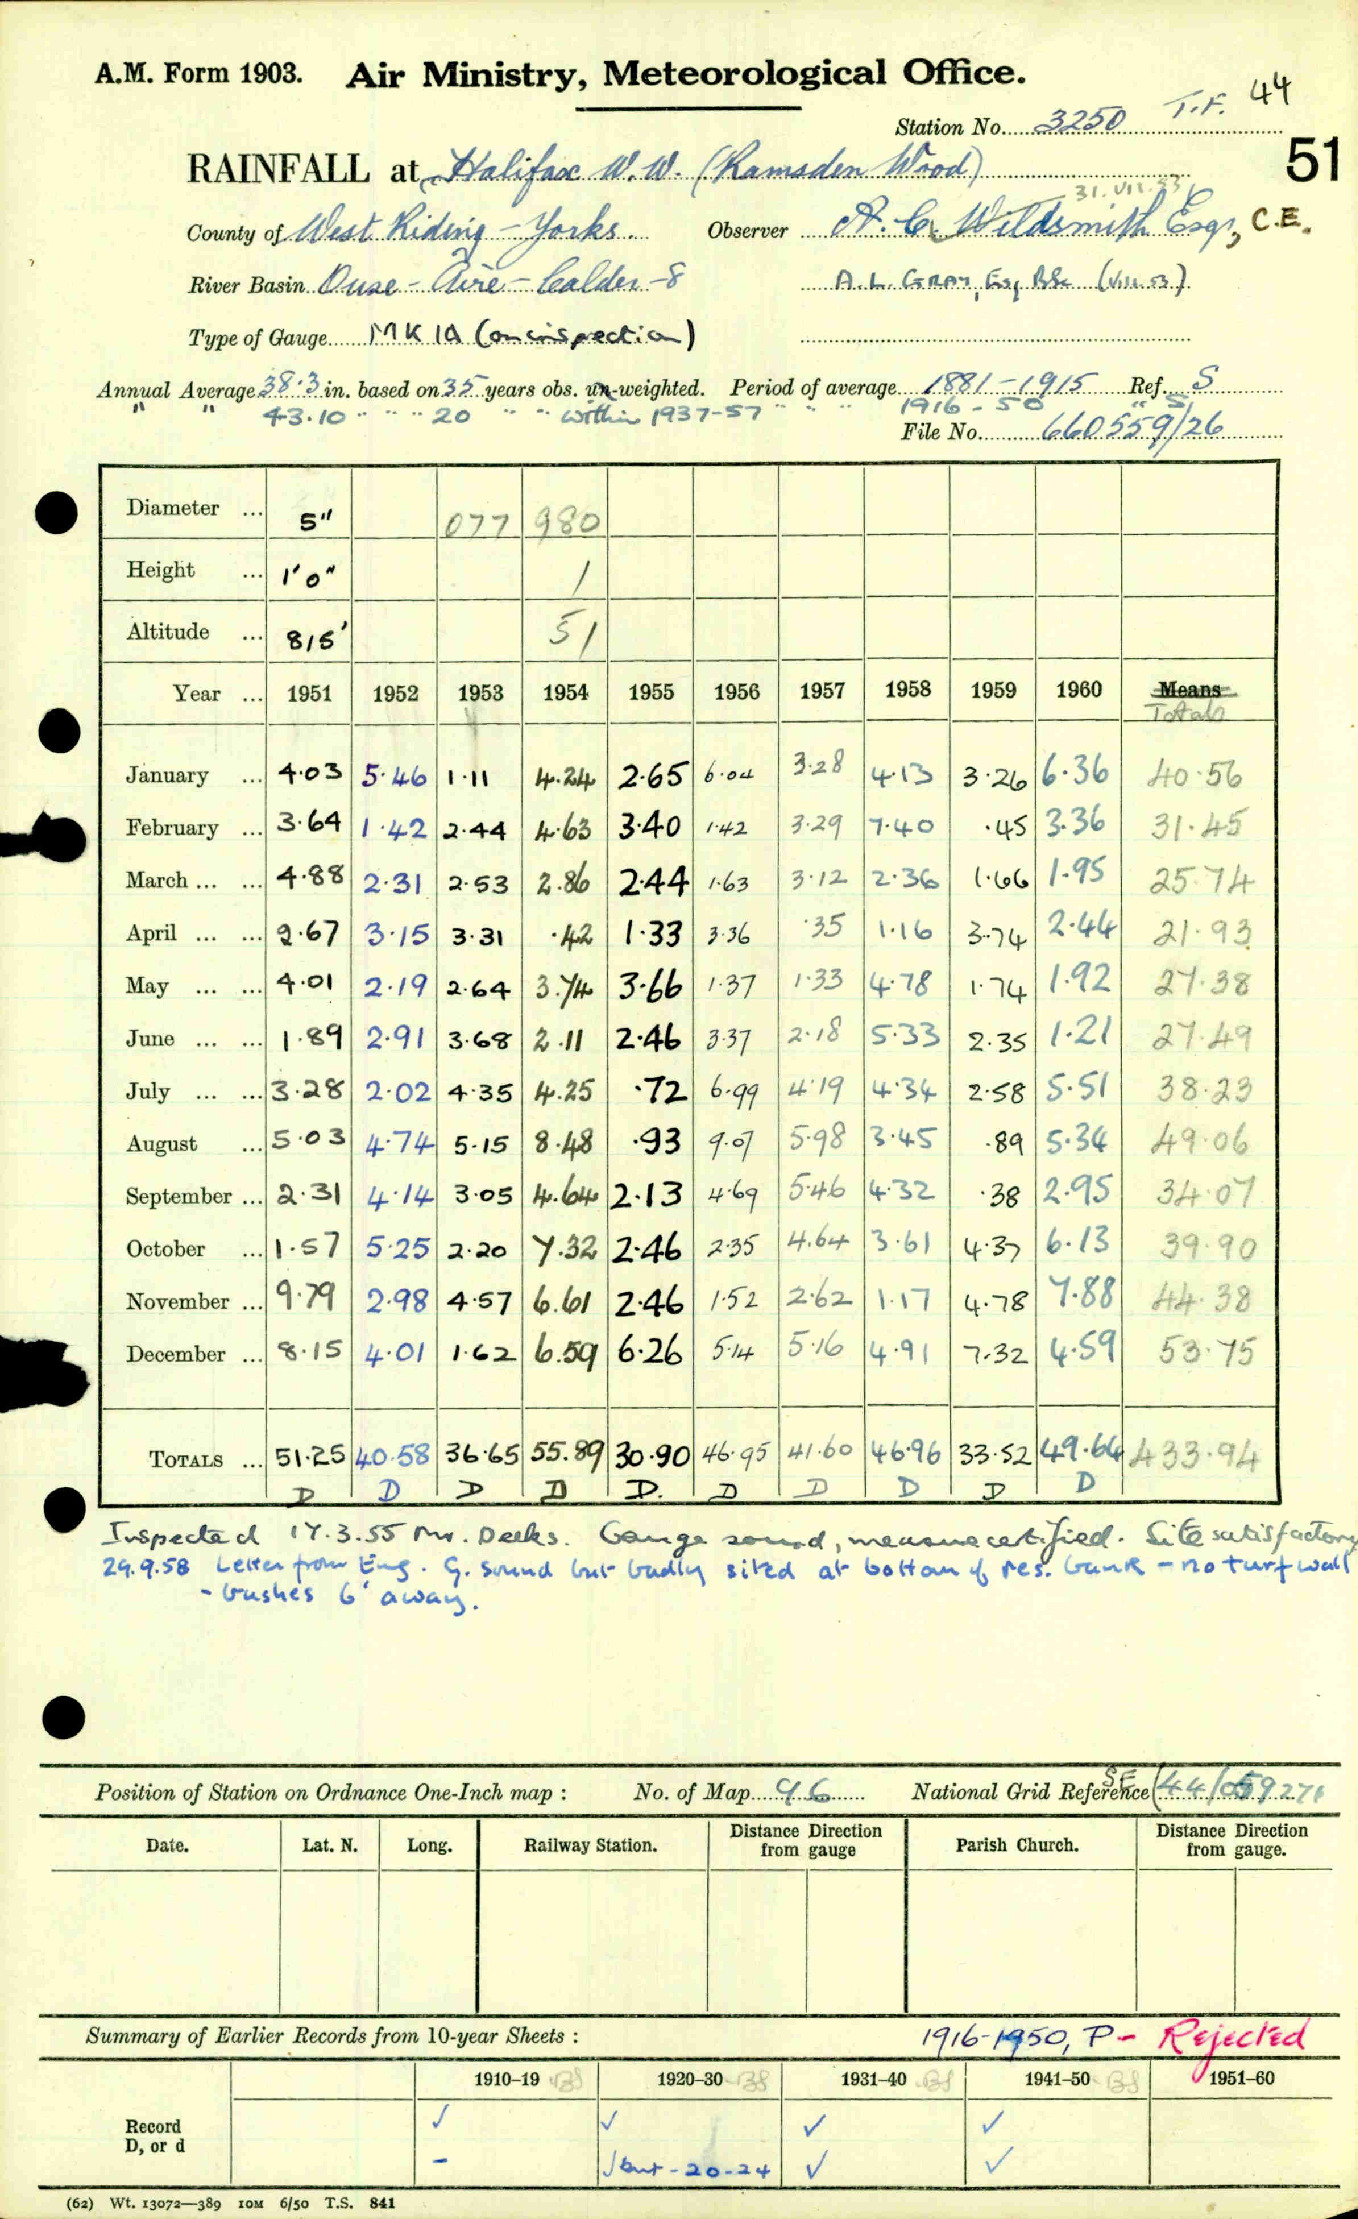 A.M. Form 1903. Air Ministry, Meteorological Office.
44
Station No. 3250 T.F.
51
RAINFALL at Halifax W.W. (Ramsden Wood)
31.VII.53
County of West Riding - Yorks. Observer A. C. Wildsmith Esqr, C.E.
River Basin Ouse - Aire - Calder - 8 A. L. GRAY, Esq BSc (VIII.53)
Type of Gauge MK IA (on inspection)
Annual Average 38.3 in. based on 35 years obs. un-weighted. Period of average 1881-1915 Ref. S
" " 43.10 " " " 20 " " within 1937-57 " " " 1916-50 " S
File No. 660559/26
Diameter ... 5" 077 980
Height ... 1'0" 1
Altitude ... 815' 51
Year ... 1951 1952 1953 1954 1955 1956 1957 1958 1959 1960 Means
Totals
January ... 4.03 5.46 1.11 4.24 2.65 6.04 3.28 4.13 3.26 6.36 40.56
February ... 3.64 1.42 2.44 4.63 3.40 1.42 3.29 7.40 .45 3.36 31.45
March ... ... 4.88 2.31 2.53 2.86 2.44 1.63 3.12 2.36 1.66 1.95 25.74
April ... ... 2.67 3.15 3.31 .42 1.33 3.36 .35 1.16 3.74 2.44 21.93
May ... ... 4.01 2.19 2.64 3.74 3.66 1.37 1.33 4.78 1.74 1.92 27.38
June ... ... 1.89 2.91 3.68 2.11 2.46 3.37 2.18 5.33 2.35 1.21 27.49
July ... ... 3.28 2.02 4.35 4.25 .72 6.99 4.19 4.34 2.58 5.51 38.23
August ... 5.03 4.74 5.15 8.48 .93 9.07 5.98 3.45 .89 5.34 49.06
September ... 2.31 4.14 3.05 4.64 2.13 4.69 5.46 4.32 .38 2.95 34.07
October ... 1.57 5.25 2.20 7.32 2.46 2.35 4.64 3.61 4.37 6.13 39.90
November ... 9.79 2.98 4.57 6.61 2.46 1.52 2.62 1.17 4.78 7.88 44.38
December ... 8.15 4.01 1.62 6.59 6.26 5.14 5.16 4.91 7.32 4.59 53.75
TOTALS ... 51.25 40.58 36.65 55.89 30.90 46.95 41.60 46.96 33.52 49.64 433.94
D D D D D. D D D D D
Inspected 17.3.55 Mr. Deeks. Gauge sound, measure certified. Site satisfactory
29.9.58 Letter from Eng. G. sound but badly sited at bottom of res. bank - no turf wall
- bushes 6' away.
Position of Station on Ordnance One-Inch map : No. of Map 96 National Grid Reference SE (44/059276
Date. Lat. N. Long. Railway Station. Distance from Direction gauge Parish Church. Distance from Direction gauge.
Summary of Earlier Records from 10-year Sheets : 1916-1950, P - Rejected
1910–19 1920–30 1931–40 1941–50 1951–60
Record ✓ ✓ ✓ ✓
D, or d - ✓ but - 20-24 ✓ ✓
(62) Wt. 13072—389 10M 6/50 T.S. 841